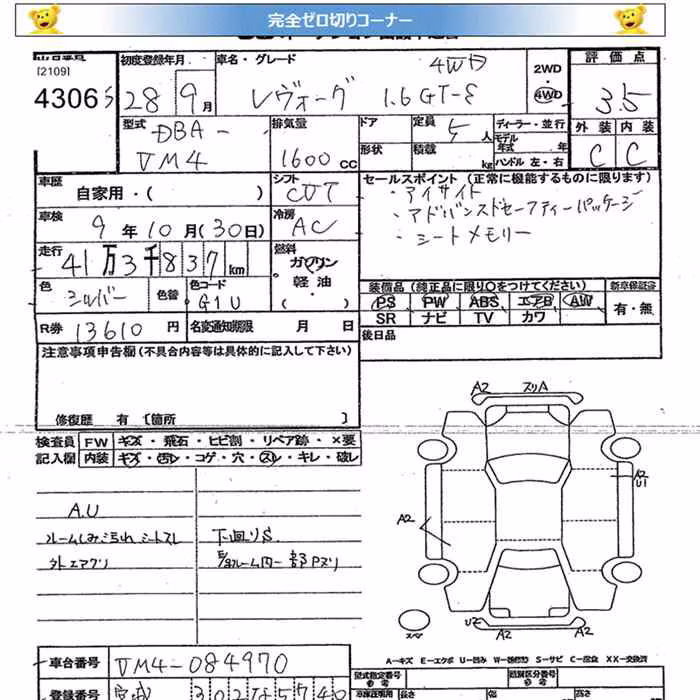 完全ゼロ切りコーナー
[2109]
43065
初度登録年月
28 9月
車名・グレード
レヴォーグ 1.6GT-S
4WD
2WD
4WD
評価点
3.5
外装 内装
C C
型式
DBA-
VM4
排気量
1600cc
ドア
形状
定員
5人
積載
kg
ディーラー・並行
モデル年式 年
ハンドル 左・右
車歴
自家用・( )
シフト
CVT
セールスポイント (正常に機能するものに限ります)
・アイサイト
・アドバンスドセーフティーパッケージ
・シートメモリー
車検
9年10月(30日)
冷房
AC
走行
41万3千837km
燃料
ガソリン
軽油・
( )
色
シルバー
色替
色コード
G1U
装備品 (純正品に限り〇をつけてください)
新車保証書
PS PW ABS エアB AW
SR ナビ TV カワ
有・無
R券 13610円
名変通知期限 月 日
後日品
注意事項申告欄 (不具合内容等は具体的に記入して下さい)
修復歴 有 〔箇所 〕
検査員記入欄
FW キズ・飛石・ヒビ割・リペア跡・×要
内装 キズ・汚レ・コゲ・穴・スレ・キレ・破レ
A.U
ルームしみ汚れ シートスレ
外エアクリ
下回りS
A2 スリA
A2
U1
A2
スペア
A2
A2
A-キズ E-エクボ U-凹み W-補修跡 S-サビ C-腐食 XX-交換済
車台番号 VM4-084970
登録番号 宮城
型式指定番号
類別区分番号
長さ